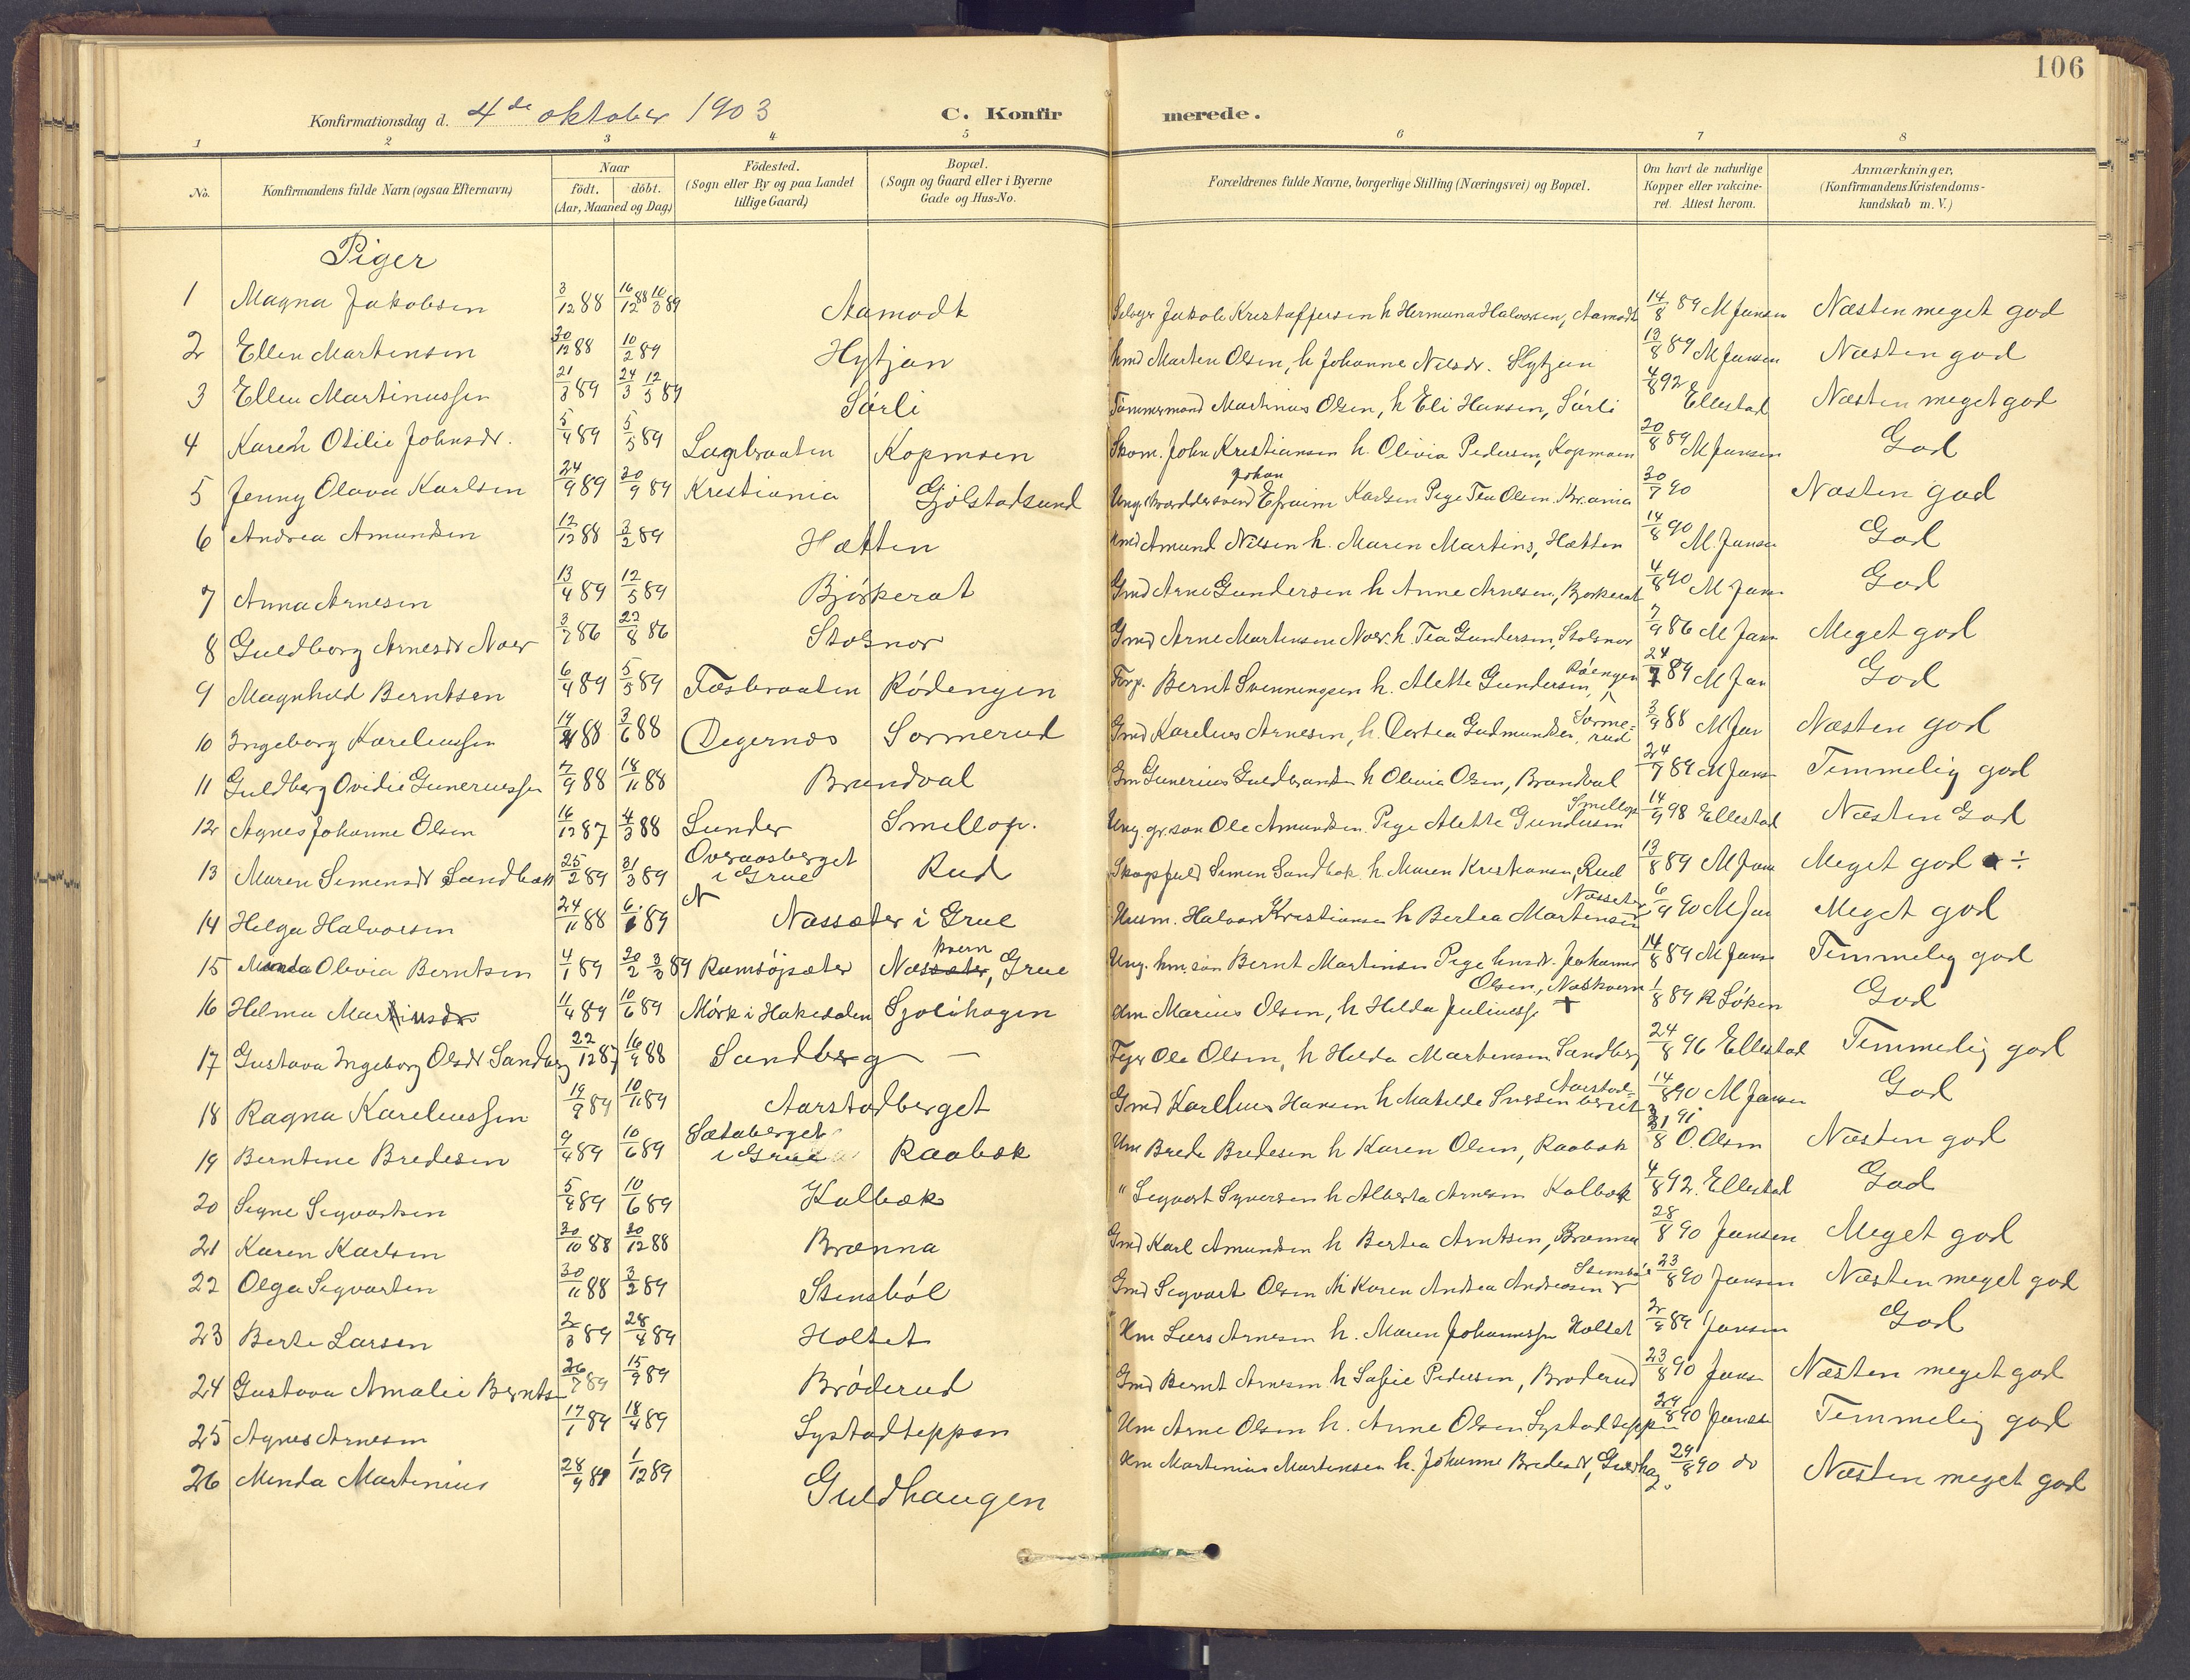 106
Konfirmationsdag d. 4de oktober 1903 C. Konfirmerede.
1 2 3 4 5 6 7 8
No. Konfirmandens fulde Navn (ogsaa Efternavn) Naar födt. döbt. (Aar, Maaned og Dag.) Födested. (Sogn eller By og paa Landet tillige Gaard) Bopæl. (Sogn og Gaard eller i Byerne Gade og Hus-No. Forældrenes fulde Navne, borgerlige Stilling (Næringsvei) og Bopæl. Om havt de naturlige Kopper eller vakcineret. Attest herom. Anmærkninger, (Konfirmandens Kristendomskundskab m. V.)
Piger
1 Magna Jakobsen 3/12 88 16/12 88 10/3 89 Aamodt Jakob Kristoffersen h Hermana Halvorsen, Aamodt 14/8 89 M Jansen Næsten meget god
2 Ellen Martensen 30/12 88 10/2 89 Hytjan Marten Olsen, h Johanne Nilsdr. Hytjan 13/8 89 M Jansen Næsten god
3 Ellen Martinussen 21/3 89 24/3 12/5 89 Sørli Tømmermand Martinus Olsen, h Eli Hansen, Sørli 4/8 92 Ellestad Næsten meget god
4 Karen Otilie Johnsdr. 5/4 89 5/5 89 Lagbraaten Kopmoen Skom. John Kristiansen h. Olivia Pedersen, Kopmoen 20/8 89 M Jansen God
5 Jenny Olava Karlsen 24/9 89 30/9 89 Kristiania Gjølstadsund Ung. skræddersvend Johan Efraim Karlsen Pige Tea Olsen. Kr.ania 30/7 90 Næsten god
6 Andrea Amundsen 12/12 88 3/2 89 Hætten Amund Nilsen h. Maren Martins, Hætten 14/8 90 M. Jansen God
7 Anna Arnesen 13/4 89 12/5 89 Bjørkerat Gmd Arne Gundersen h Anne Arnesen, Bjørkerat 4/8 90 M Jans God
8 Guldborg Arnesdr Noer 3/7 86 22/8 86 Stosnor Gmd Arne Martinsen Noer. h. Tea Gundersen, Stosnor 7/9 86 M Jans Meget god
9 Magnhild Berntsen 6/4 89 5/5 89 Fosbraaten Rödengen Forp. Bernt Svenningsen h. Alette Gundersen, Röengen 24/7 89 M Jan God
10 Ingeborg Kareliussen 14/4 88 3/6 88 Degernes Sormerud Gmd Karelius Arnesen, h. Dortea Gudmundsen, Sormerud 3/9 88 M Jan Næsten god
11 Guldborg Ovidie Gunerussen 7/9 88 18/11 88 Brandval Gm Gunerius Guldbrandsen h Olivia Olsen, Brandval 24/7 89 M Jans Temmelig god
12 Agnes Johanne Olsen 16/12 87 4/3 88 Lunder Smellop. Ung. gr. søn Ole Amundsen. Pige Alette Gundersen Smellop 14/9 98 Ellestad Næsten God
13 Maren Simensdr Sandbæk 25/2 89 31/3 89 Overaasberget i Grue Rud Skogsfuld Simen Sandbæk h. Maren Kristiansen, Rud 13/8 89 M Jans Meget god ÷
14 Helga Halvorsen 24/11 88 6/1 89 N Næssæter i Grue Husm. Halvor Kristiansen h Bertea Martensen Næssæter 6/9 90 M Jan Meget god
15 Olivia Berntsen 4/1 89 20/2 3/3 89 Ramsøjsæter Næskvern, Grue Ung. hm. søn Bernt Martinsen Pige hmsdr. Johanne Olsen, Næskvern 14/8 89 M Jans Temmelig god
16 Helma Martinsdr 11/4 89 10/6 89 Mörk i Hakedalen Sjolihagen Hm Marius Olsen, h Hilda Juliusse + 1/8 89 R Löken God
17 Gustava Ingeborg Olsdr Sandberg 22/12 87 16/9 88 Sandberg — Ole Olsen, h Hilda Martinsen Sandberg 24/8 96 Ellestad Temmelig god
18 Ragna Kareliussen 19/9 89 10/11 89 Aarstadberget Gmd Karelius Hansen h Matilde Aarstadberget 14/8 90 M Jansen God
19 Berntine Bredesen 9/4 89 10/6 89 Sætaberget i Grue Raabæk Hm Brede Bredesen h Karen Olsen, Raabæk 31/8 91 O. Olsen Næsten god
20 Signe Sigvartsen 5/4 89 10/6 89 Kalbæk " Sigvart Syversen h Alberta Arnesen Kalbæk 4/8 92. Ellestad God
21 Karen Karlsen 30/10 88 30/12 88 Brænna Gmd Karl Amundsen h Bertea Arntsen, Brænna 28/8 90 Jansen Meget god
22 Olga Sigvartsen 30/11 88 3/2 89 Stensböl Gmd Sigvart Olsen h Karen Andrea Andreasen Stensböl 23/8 90 Jansen Næsten meget god
23 Berte Larsen 2/3 89 28/4 89 Holtet Hm Lars Arnesen h. Maren Johannessen Holtet 2/9 89 Jansen God
24 Gustava Amalie Bernts 26/7 89 15/9 89 Bröderud Gmd Bernt Arnesen h Sofie Pedersen, Bröderud 23/8 90 Jans Næsten meget god
25 Agnes Arnesen 17/1 89 18/4 89 Systadteppen Hm Arne Olsen h. Anne Olsen Systadteppen 29/8 90 Jansen Temmelig god
26 Minda Martinius 28/9 89 1/12 89 Guldhaugen Hm Martinius Martinsen h. Johanne Bredesdr, Guldhag 29/8 90 do Næsten meget god